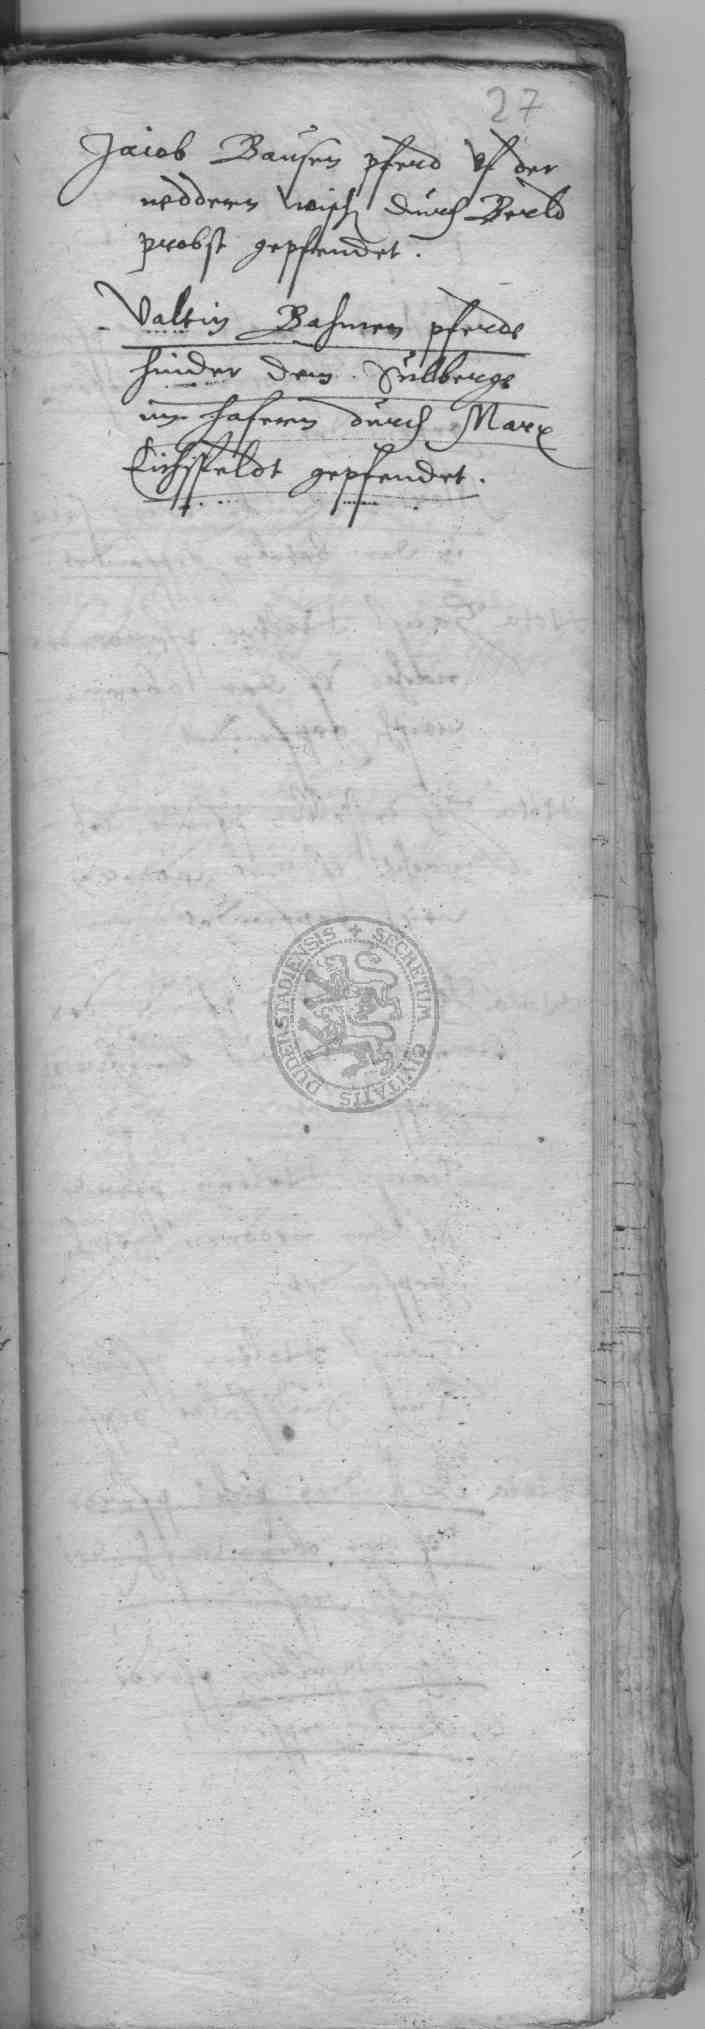 27
Jacob Bausen pferd vf der
neddern wisch durch Berld
probst gepfendet.
Valtin Bahmen pferde
hinder dem Sulberge
im hafern durch Marx
Eichssfeldt gepfendet.
SECRETUM CIVITATIS DUDERSTADIENSIS